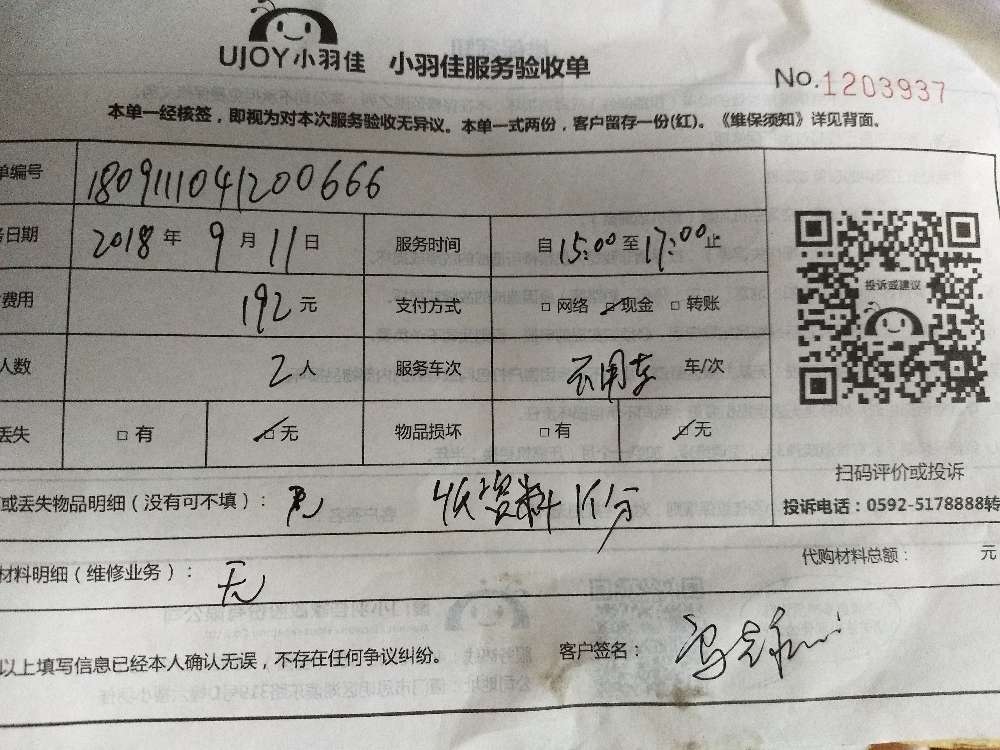 UJOY小羽佳 小羽佳服务验收单
No.1203937
本单一经核签，即视为对本次服务验收无异议。本单一式两份，客户留存一份(红)。《维保须知》详见背面。
单编号 1809111041200666
务日期 2018 年 9 月 11 日 服务时间 自 15:00 至 17:00 止
费用 192 元 支付方式 □ 网络 □ 现金 □ 转账
人数 2 人 服务车次 车/次
丢失 □ 有 □ 无 物品损坏 □ 有 □ 无
投诉或建议
扫码评价或投诉
投诉电话：0592-5178888转
或丢失物品明细（没有可不填）： 收资料1份
代购材料总额： 元
材料明细（维修业务）： 无
以上填写信息已经本人确认无误，不存在任何争议纠纷。 客户签名：